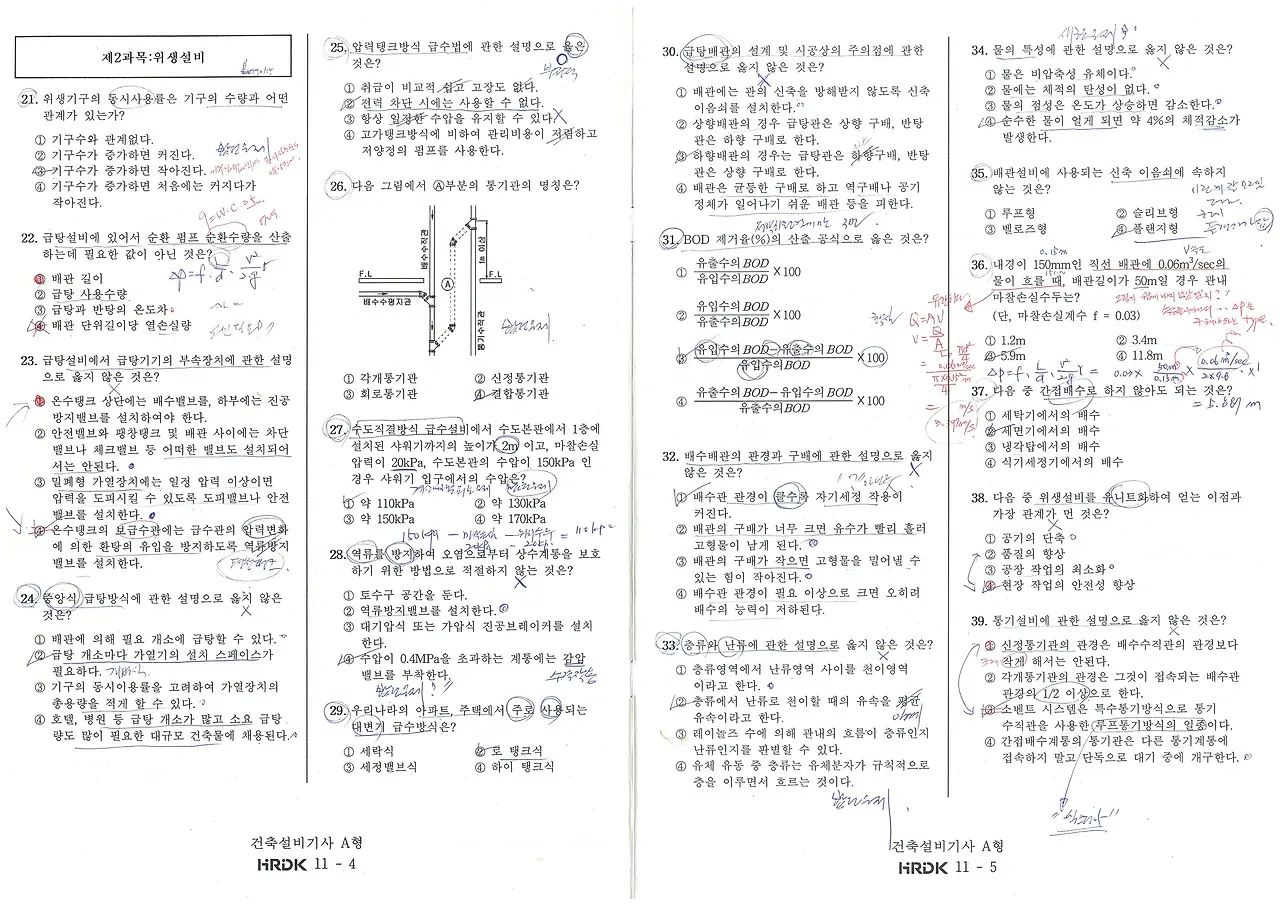 제2과목:위생설비
21. 위생기구의 동시사용률은 기구의 수량과 어떤
관계가 있는가?
① 기구수와 관계없다.
② 기구수가 증가하면 커진다.
③ 기구수가 증가하면 작아진다.
④ 기구수가 증가하면 처음에는 커지다가
작아진다.
22. 급탕설비에 있어서 순환 펌프 순환수량을 산출
하는데 필요한 값이 아닌 것은?
① 배관 길이
② 급탕 사용수량
③ 급탕과 반탕의 온도차
④ 배관 단위길이당 열손실량
23. 급탕설비에서 급탕기기의 부속장치에 관한 설명
으로 옳지 않은 것은?
① 온수탱크 상단에는 배수밸브를, 하부에는 진공
방지밸브를 설치하여야 한다.
② 안전밸브와 팽창탱크 및 배관 사이에는 차단
밸브나 체크밸브 등 어떠한 밸브도 설치되어
서는 안된다.
③ 밀폐형 가열장치에는 일정 압력 이상이면
압력을 도피시킬 수 있도록 도피밸브나 안전
밸브를 설치한다.
④ 온수탱크의 보급수관에는 급수관의 압력변화
에 의한 환탕의 유입을 방지하도록 역류방지
밸브를 설치한다.
24. 중앙식 급탕방식에 관한 설명으로 옳지 않은
것은?
① 배관에 의해 필요 개소에 급탕할 수 있다.
② 급탕 개소마다 가열기의 설치 스페이스가
필요하다. 개별식
③ 기구의 동시이용률을 고려하여 가열장치의
총용량을 적게 할 수 있다.
④ 호텔, 병원 등 급탕 개소가 많고 소요 급탕
량도 많이 필요한 대규모 건축물에 채용된다.
25. 압력탱크방식 급수법에 관한 설명으로 옳은
것은?
① 취급이 비교적 쉽고 고장도 없다.
② 전력 차단 시에는 사용할 수 없다.
③ 항상 일정한 수압을 유지할 수 있다.
④ 고가탱크방식에 비하여 관리비용이 저렴하고
저양정의 펌프를 사용한다.
26. 다음 그림에서 Ⓐ부분의 통기관의 명칭은?
배수수직관
1m 이상
F.L
F.L
Ⓐ
배수수평지관
통기수직관
① 각개통기관 ② 신정통기관
③ 회로통기관 ④ 결합통기관
27. 수도직결방식 급수설비에서 수도본관에서 1층에
설치된 샤워기까지의 높이가 2m 이고, 마찰손실
압력이 20kPa, 수도본관의 수압이 150kPa 인
경우 샤워기 입구에서의 수압은?
① 약 110kPa ② 약 130kPa
③ 약 150kPa ④ 약 170kPa
28. 역류를 방지하여 오염으로부터 상수계통을 보호
하기 위한 방법으로 적절하지 않는 것은?
① 토수구 공간을 둔다.
② 역류방지밸브를 설치한다.
③ 대기압식 또는 가압식 진공브레이커를 설치
한다.
④ 수압이 0.4MPa을 초과하는 계통에는 감압
밸브를 부착한다.
29. 우리나라의 아파트, 주택에서 주로 사용되는
대변기 급수방식은?
① 세락식 ② 로 탱크식
③ 세정밸브식 ④ 하이 탱크식
건축설비기사 A형
HRDK 11 - 4
30. 급탕배관의 설계 및 시공상의 주의점에 관한
설명으로 옳지 않은 것은?
① 배관에는 관의 신축을 방해받지 않도록 신축
이음쇠를 설치한다.
② 상향배관의 경우 급탕관은 상향 구배, 반탕
관은 하향 구배로 한다.
③ 하향배관의 경우는 급탕관은 하향구배, 반탕
관은 상향 구배로 한다.
④ 배관은 균등한 구배로 하고 역구배나 공기
정체가 일어나기 쉬운 배관 등을 피한다.
31. BOD 제거율(%)의 산출 공식으로 옳은 것은?
① 유출수의BOD / 유입수의BOD ×100
② 유입수의BOD / 유출수의BOD ×100
③ 유입수의BOD-유출수의BOD / 유입수의BOD ×100
④ 유출수의BOD-유입수의BOD / 유출수의BOD ×100
32. 배수배관의 관경과 구배에 관한 설명으로 옳지
않은 것은?
① 배수관 관경이 클수록 자기세정 작용이
커진다.
② 배관의 구배가 너무 크면 유수가 빨리 흘러
고형물이 남게 된다.
③ 배관의 구배가 작으면 고형물을 밀어낼 수
있는 힘이 작아진다.
④ 배수관 관경이 필요 이상으로 크면 오히려
배수의 능력이 저하된다.
33. 층류와 난류에 관한 설명으로 옳지 않은 것은?
① 층류영역에서 난류영역 사이를 천이영역
이라고 한다.
② 층류에서 난류로 천이할 때의 유속을 평균
유속이라고 한다.
③ 레이놀즈 수에 의해 관내의 흐름이 층류인지
난류인지를 판별할 수 있다.
④ 유체 유동 중 층류는 유체분자가 규칙적으로
층을 이루면서 흐르는 것이다.
34. 물의 특성에 관한 설명으로 옳지 않은 것은?
① 물은 비압축성 유체이다.
② 물에는 체적의 탄성이 없다.
③ 물의 점성은 온도가 상승하면 감소한다.
④ 순수한 물이 얼게 되면 약 4%의 체적감소가
발생한다.
35. 배관설비에 사용되는 신축 이음쇠에 속하지
않는 것은?
① 루프형 ② 슬리브형
③ 벨로즈형 ④ 플랜지형
36. 내경이 150mm인 직선 배관에 0.06m³/sec의
물이 흐를 때, 배관길이가 50m일 경우 관내
마찰손실수두는?
(단, 마찰손실계수 f = 0.03)
① 1.2m ② 3.4m
③ 5.9m ④ 11.8m
37. 다음 중 간접배수로 하지 않아도 되는 것은?
① 세탁기에서의 배수
② 세면기에서의 배수
③ 냉각탑에서의 배수
④ 식기세정기에서의 배수
38. 다음 중 위생설비를 유니트화하여 얻는 이점과
가장 관계가 먼 것은?
① 공기의 단축
② 품질의 향상
③ 공장 작업의 최소화
④ 현장 작업의 안전성 향상
39. 통기설비에 관한 설명으로 옳지 않은 것은?
① 신정통기관의 관경은 배수수직관의 관경보다
작게 해서는 안된다.
② 각개통기관의 관경은 그것이 접속되는 배수관
관경의 1/2 이상으로 한다.
③ 소벤트 시스템은 특수통기방식으로 통기
수직관을 사용한 루프통기방식의 일종이다.
④ 간접배수계통의 통기관은 다른 통기계통에
접속하지 말고 단독으로 대기 중에 개구한다.
건축설비기사 A형
HRDK 11 - 5